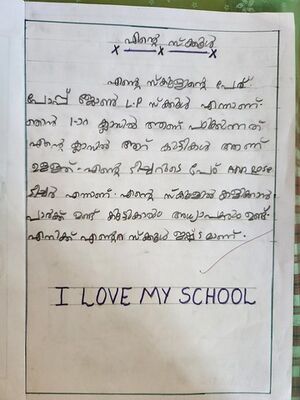 എന്റെ സ്കൂൾ
എന്റെ സ്കൂളിന്റെ പേര്.
പോപ്പ് ജോൺ L.P സ്കൂൾ എന്നാണ്.
ഞാൻ 1-ാം ക്ലാസിൽ ആണ് പഠിക്കുന്നത്.
എന്റെ ക്ലാസിൽ ആറ് കുട്ടികൾ ആണ്
ഉള്ളത്. എന്റെ ടീച്ചറുടെ പേര്
ടീച്ചർ എന്നാണ്. എന്റെ സ്കൂളിൽ കളിക്കാൻ
പാർക്ക് ഉണ്ട് കുട്ടികളും അധ്യാപകരും ഉണ്ട്.
എനിക്ക് എന്റെ സ്കൂൾ ഇഷ്ട്ടമാണ്.
I LOVE MY SCHOOL